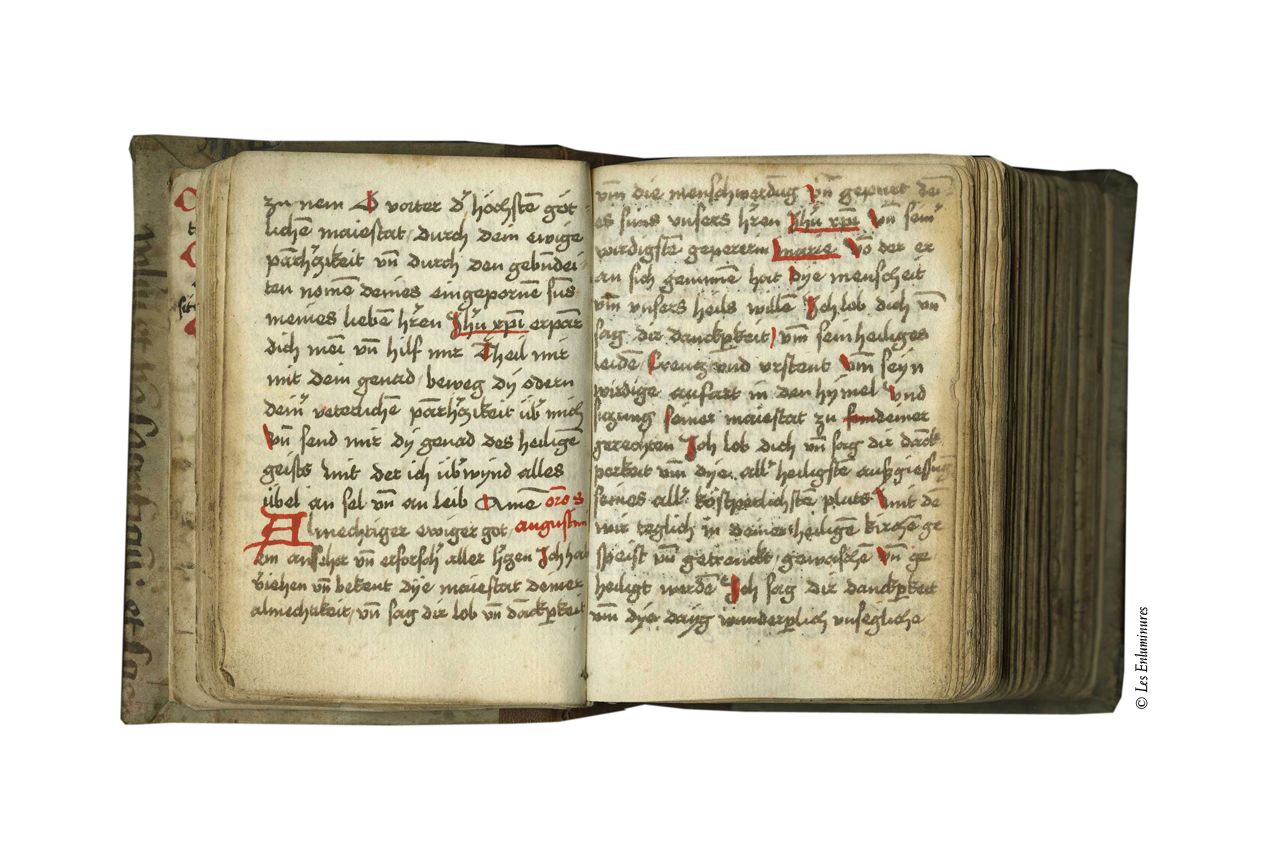 zu nem O vorter d' höchstē göt
lichē maiestat / durch dein ewige
parh'ʒikeit vn̄ durch den gebn̄dei
ten nomē deines eingepornē suns
meines liebē h'ren Jhū xp̄i erpar
dich mei vn̄ hilf mir Theil mir
mit dein genad / beweg dy odern
dein' veterlichē parh'ʒikeit üb' mich
vn̄ send mir dy genad des heiligē
geists mit der ich üb'wynd alles
übel an sel vn̄ an leib Amē oro s
Almechtiger ewiger got augustin
ein vn̄ erforsch' aller h'ʒen Ich hab
v'iehen vn̄ bekent dye maiestat deiner
almechikeit / vn̄ sag dir lob vn̄ dāckp'keit
vm̄ die menschwerdūg vn̄ gepurt dei
es suns vnsers h'ren Jhū xp̄i vn̄ sein'
wirdigstē gepererin marie Vō der er
an sich genumē hat dye menscheit
vm̄ vnsers heils willē Ich lob dich vn̄
sag dir danckp'keit / vm̄ sein heiliges
leidē Creutz vnd vrstent Vm̄ seyn
wirdige aufart in den hymel vnd
siʒung seiner maiestat zu deiner
gerechten Ich lob dich vn̄ sag dir dāck
perkeit vm̄ dye all' heiligste ausgiessūg
seines all' köstperlichstē pluts mit dē
wir teglich in deiner heiligē kirchē ge
speist vn̄ getrenckt / gewaschē vn̄ ge
heiligt werdē Ich sag dir danckp'keit
vm̄ dye wunderp'lich vnsegliche
© Les Enluminures